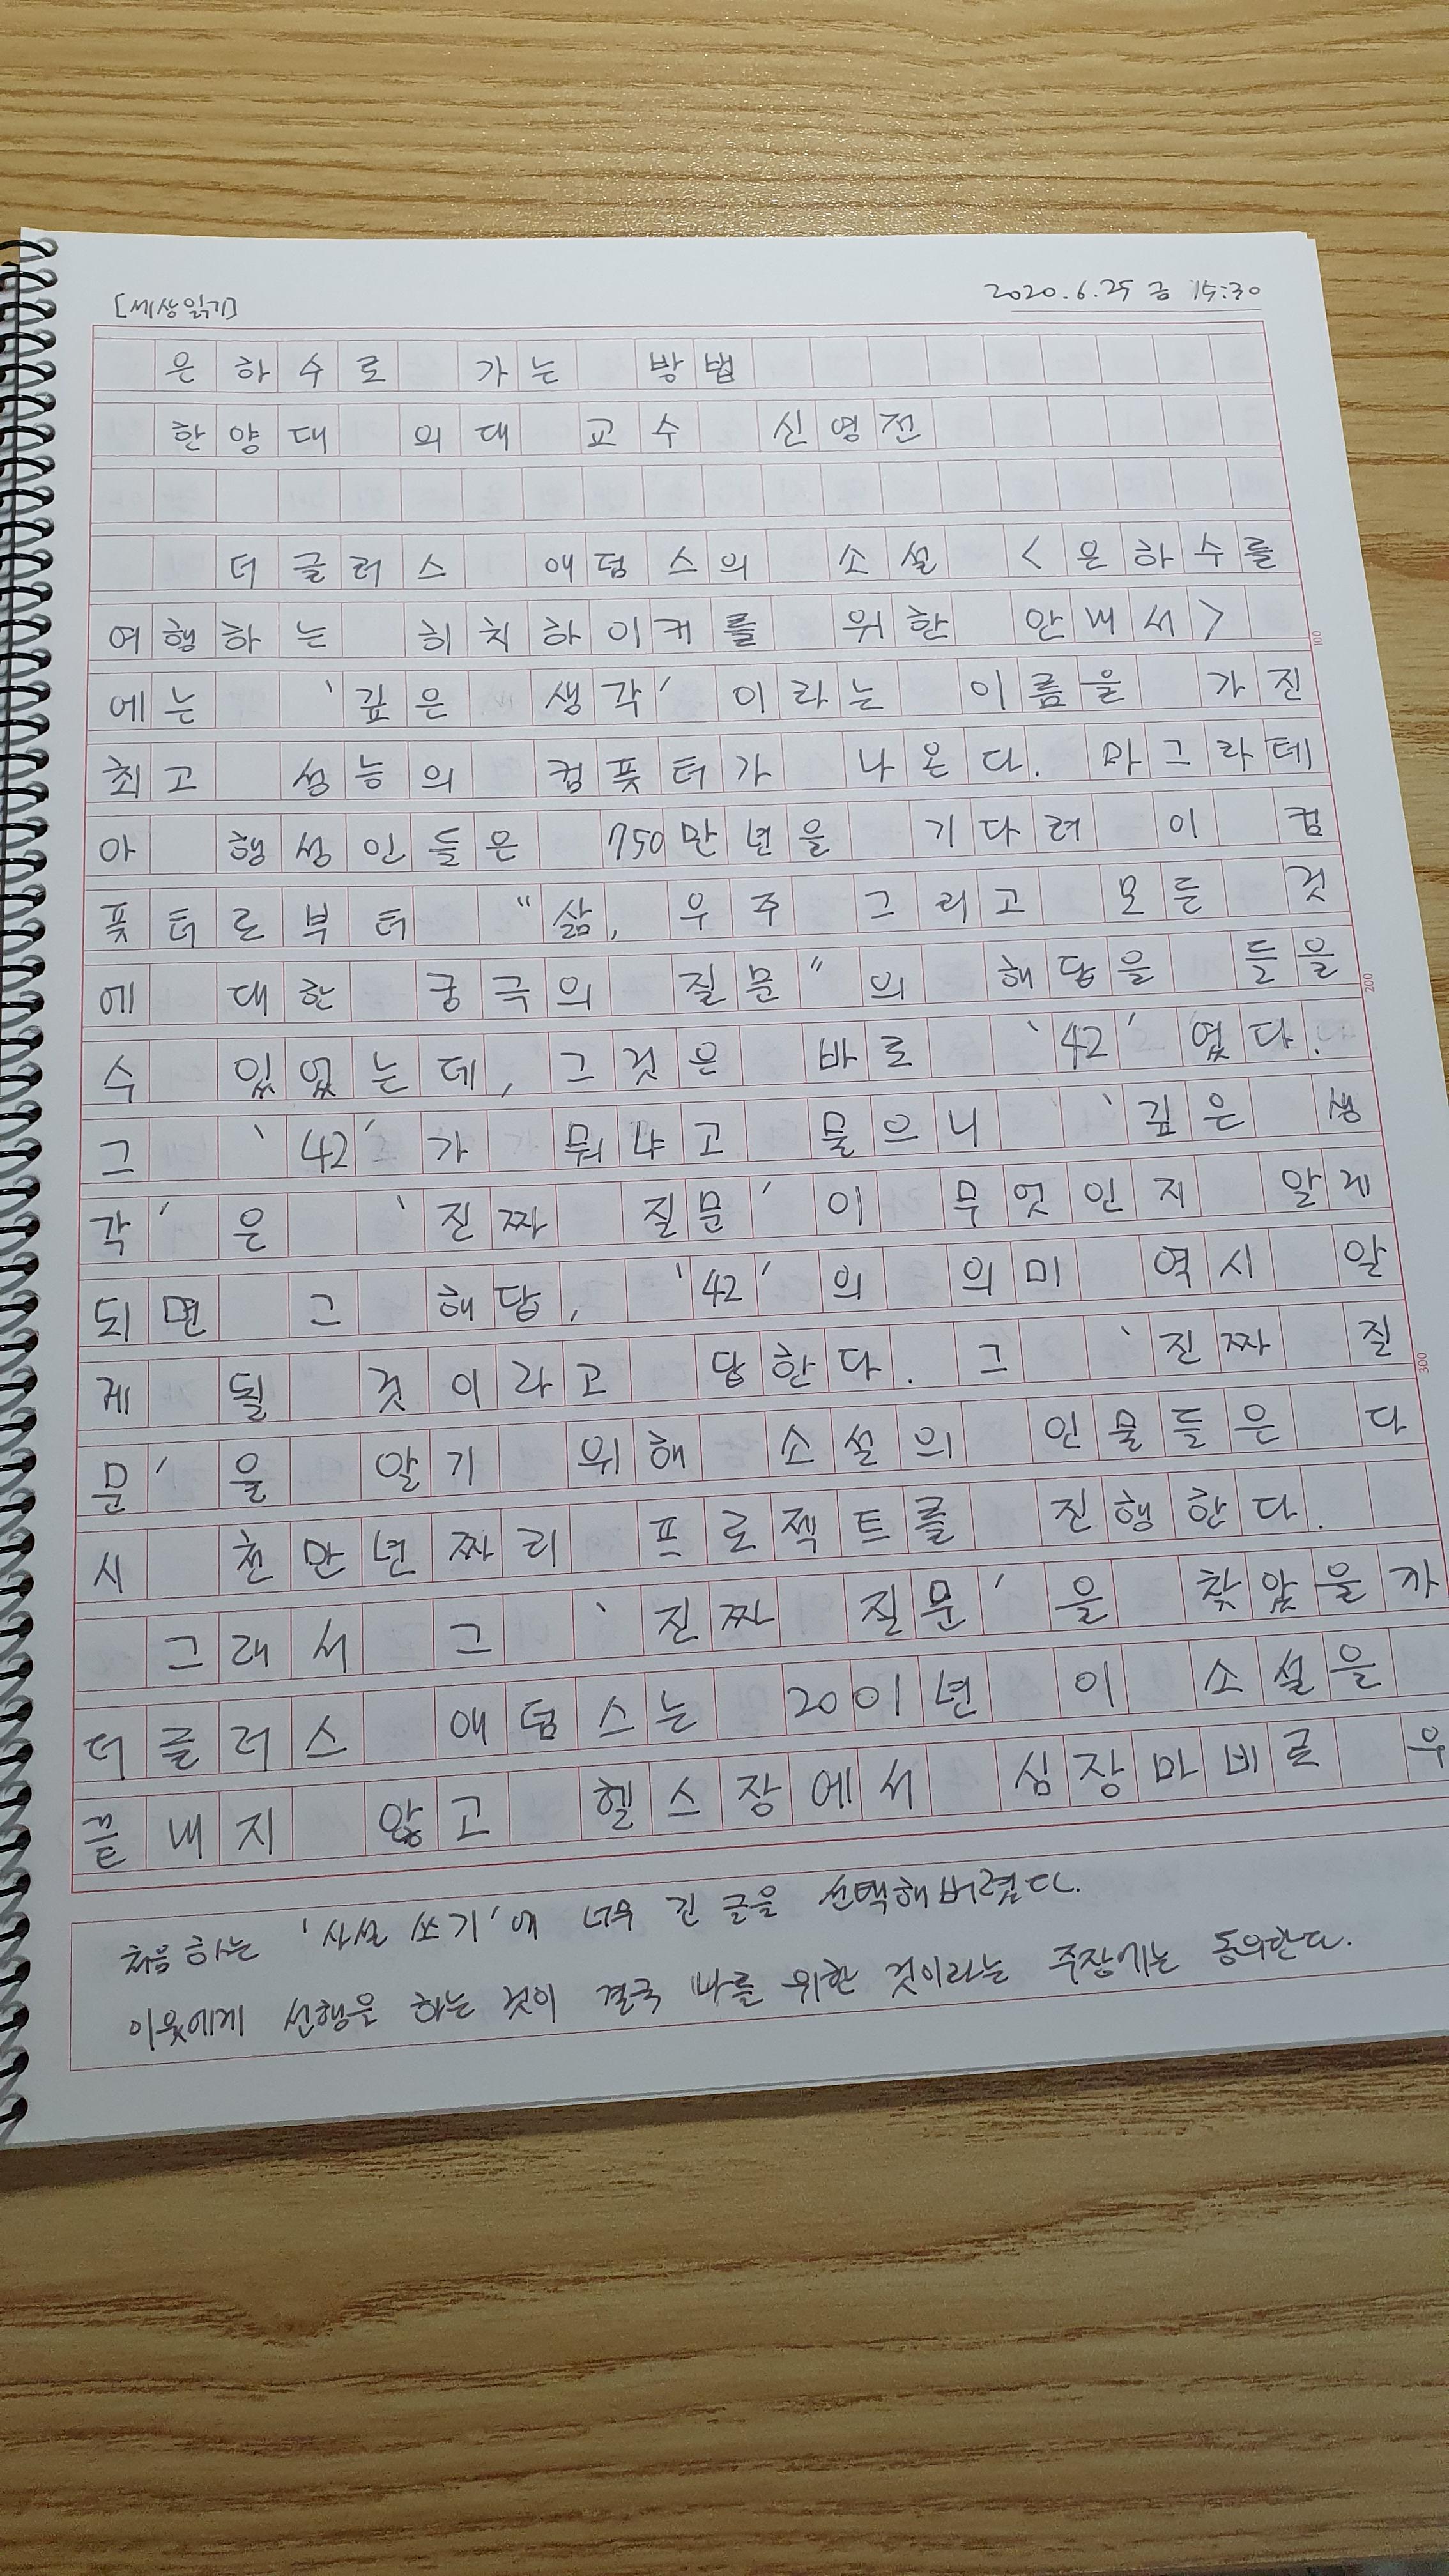 [세상읽기]
2020.6.25 금 15:30
은하수로 가는 방법
한양대 의대 교수 신영전
더글러스 애덤스의 소설 <은하수를
여행하는 히치하이커를 위한 안내서>
에는 '깊은 생각'이라는 이름을 가진
최고 성능의 컴퓻터가 나온다. 마그라테
아 행성인들은 750만년을 기다려 이 컴
퓻터로부터 "삶, 우주 그리고 모든 것
에 대한 궁극의 질문"의 해답을 들을
수 있었는데, 그것은 바로 '42'였다.
그 '42'가 뭐냐고 물으니 '깊은 생
각'은 '진짜 질문'이 무엇인지 알게
되면 그 해답, '42'의 의미 역시 알
게 될 것이라고 답한다. 그 '진짜 질
문'을 알기 위해 소설의 인물들은 다
시 천만년짜리 프로젝트를 진행한다.
그래서 그 '진짜 질문'을 찾았을까
더글러스 애덤스는 2001년 이 소설을
끝내지 않고 헬스장에서 심장마비로 우
100
200
300
처음 하는 '사설 쓰기'에 너무 긴 글을 선택해버렸다.
이웃에게 선행을 하는 것이 결국 나를 위한 것이라는 주장에는 동의한다.